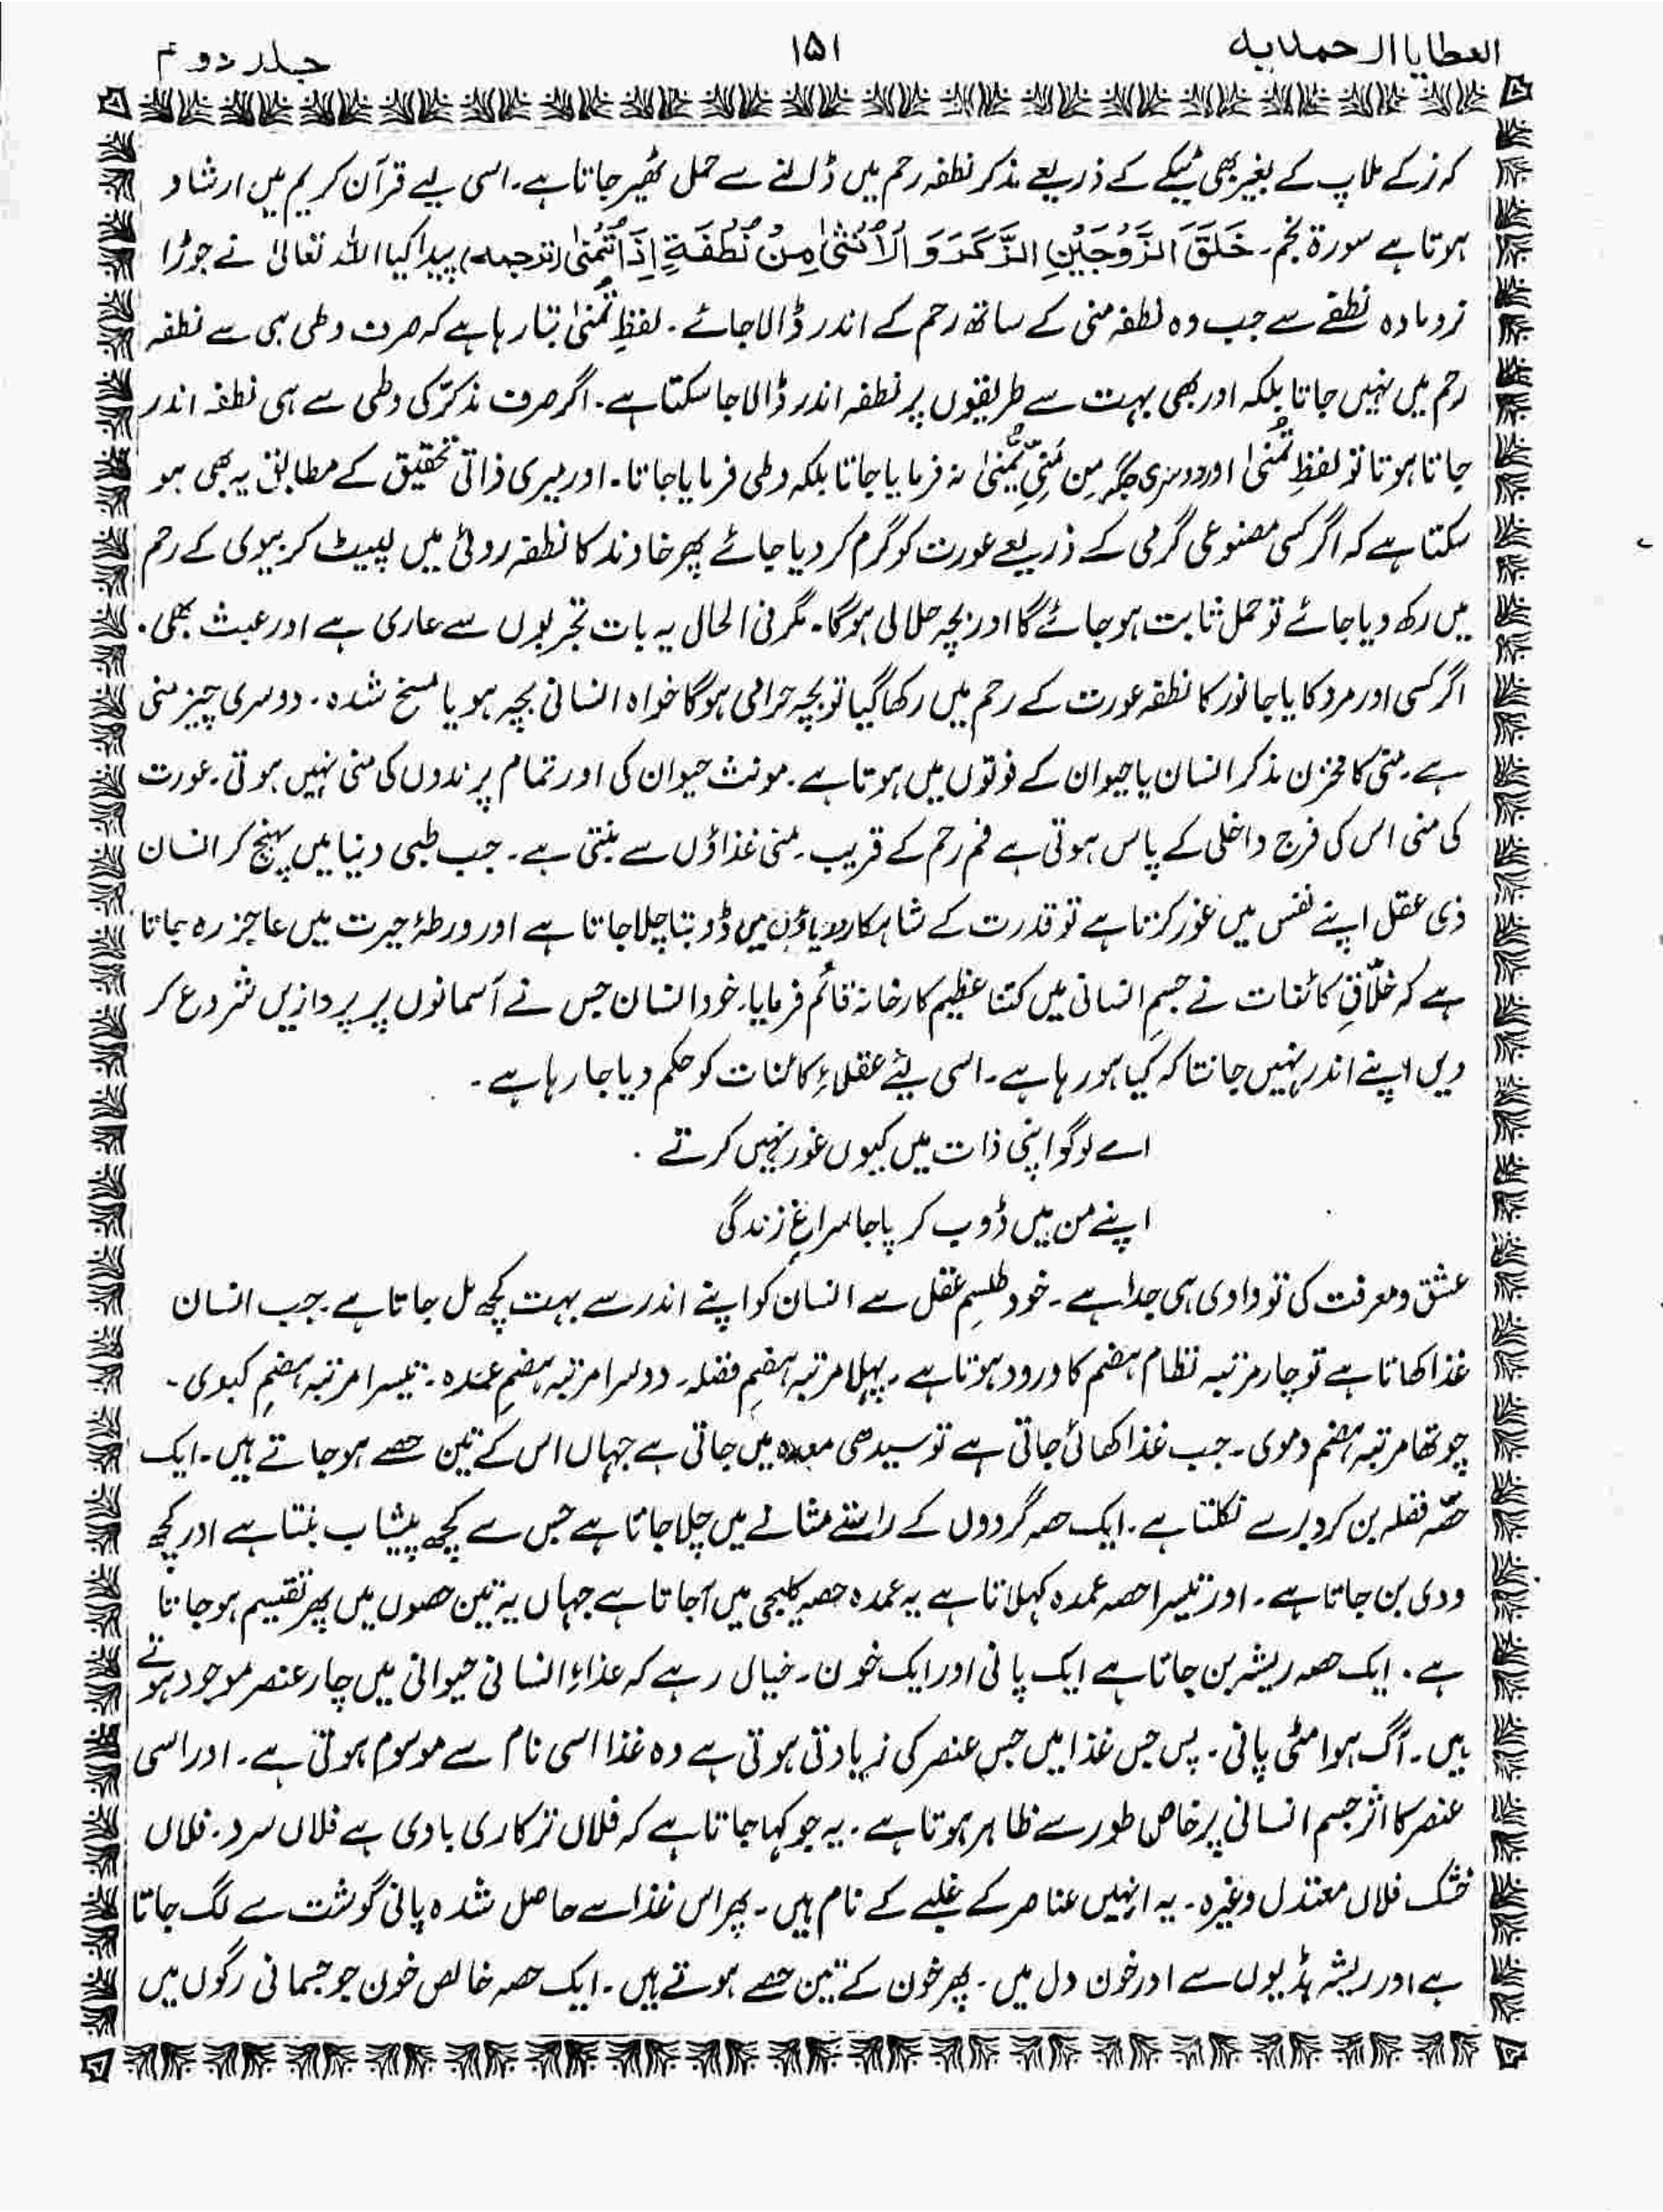 العطایا الاحمدیہ
۱۵۱
جلد دوم
کہ نر کے ملاپ کے بغیر بھی ٹیکے کے ذریعے مذکر نطفہ رحم میں ڈالنے سے حمل ٹھیر جاتا ہے۔ اسی لیے قرآن کریم میں ارشاد
ہوتا ہے سورۃ نجم۔ خَلَقَ الزَّوْجَیْنِ الذَّکَرَ وَ الْاُنْثیٰ مِنْ نُّطْفَةٍ اِذَا تُمْنیٰ (ترجمہ) پیدا کیا اللہ تعالیٰ نے جوڑا
نر و مادہ نطفے سے جب وہ نطفہ منی کے ساتھ رحم کے اندر ڈالا جائے۔ لفظِ تُمنیٰ بتا رہا ہے کہ صرف وطی ہی سے نطفہ
رحم میں نہیں جاتا بلکہ اور بھی بہت سے طریقوں پر نطفہ اندر ڈالا جا سکتا ہے۔ اگر صرف مذکّر کی وطی سے ہی نطفہ اندر
جاتا ہوتا تو لفظِ تُمنیٰ اور دوسری جگہ مِن مَّنِیٍّ یُّمنیٰ نہ فرمایا جاتا بلکہ وطی فرمایا جاتا۔ اور میری ذاتی تحقیق کے مطابق یہ بھی ہو
سکتا ہے کہ اگر کسی مصنوعی گرمی کے ذریعے عورت کو گرم کر دیا جائے پھر خاوند کا نطفہ روئی میں لپیٹ کر بیوی کے رحم
میں رکھ دیا جائے تو حمل ثابت ہو جائے گا اور بچہ حلالی ہوگا۔ مگر فی الحال یہ بات تجربوں سے عاری ہے اور عبث بھی۔
اگر کسی اور مرد کا یا جانور کا نطفہ عورت کے رحم میں رکھا گیا تو بچہ حرامی ہوگا خواہ انسانی بچہ ہو یا مسخ شدہ۔ دوسری چیز منی
ہے۔ منی کا مخزن مذکر انسان یا حیوان کے فوتوں میں ہوتا ہے۔ مونث حیوان کی اور تمام پرندوں کی منی نہیں ہوتی۔ عورت
کی منی اس کی فرج داخلی کے پاس ہوتی ہے فم رحم کے قریب۔ منی غذاؤں سے بنتی ہے۔ جب طبی دنیا میں پہنچ کر انسان
ذی عقل اپنے نفس میں غور کرتا ہے تو قدرت کے شاہکار دریاؤں میں ڈوبتا چلا جاتا ہے اور ورطۂ حیرت میں عاجز رہ جاتا
ہے کہ خلّاقِ کائنات نے جسمِ انسانی میں کتنا عظیم کارخانہ قائم فرمایا۔ خود انسان جس نے آسمانوں پر پردازیں شروع کر
دیں اپنے اندر نہیں جانتا کہ کیا ہو رہا ہے۔ اسی لئے عقلاءِ کائنات کو حکم دیا جا رہا ہے۔
اے لوگو اپنی ذات میں کیوں غور نہیں کرتے۔
اپنے من میں ڈوب کر پا جا سراغِ زندگی
عشق و معرفت کی تو وادی ہی جدا ہے۔ خود طلسمِ عقل سے انسان کو اپنے اندر سے بہت کچھ مل جاتا ہے۔ جب انسان
غذا کھاتا ہے تو چار مرتبہ نظام ہضم کا ورود ہوتا ہے۔ پہلا مرتبہ ہضمِ فضلہ۔ دوسرا مرتبہ ہضمِ عمدہ۔ تیسرا مرتبہ ہضمِ کبدی۔
چوتھا مرتبہ ہضم دموی۔ جب غذا کھائی جاتی ہے تو سیدھی معدہ میں جاتی ہے جہاں اس کے تین حصے ہو جاتے ہیں۔ ایک
حصّہ فضلہ بن کر دبر سے نکلتا ہے۔ ایک حصہ گردوں کے راستے مثانے میں چلا جاتا ہے جس سے کچھ پیشاب بنتا ہے اور کچھ
ودی بن جاتا ہے۔ اور تیسرا حصہ عمدہ کہلاتا ہے یہ عمدہ حصہ کلیجی میں آ جاتا ہے جہاں یہ تین حصوں میں پھر تقسیم ہو جاتا
ہے۔ ایک حصہ ریشہ بن جاتا ہے ایک پانی اور ایک خون۔ خیال رہے کہ غذاءِ انسانی حیوانی میں چار عنصر موجود ہوتے
ہیں۔ آگ ہوا مٹی پانی۔ پس جس غذا میں جس عنصر کی زیادتی ہوتی ہے وہ غذا اسی نام سے موسوم ہوتی ہے۔ اور اسی
عنصر کا اثر جسم انسانی پر خاص طور سے ظاہر ہوتا ہے۔ یہ جو کہا جاتا ہے کہ فلاں ترکاری بادی ہے فلاں سرد۔ فلاں
خشک فلاں معتدل وغیرہ۔ یہ انہیں عناصر کے غلبے کے نام ہیں۔ پھر اس غذا سے حاصل شدہ پانی گوشت سے لگ جاتا
ہے اور ریشہ ہڈیوں سے اور خون دل میں۔ پھر خون کے تین حصے ہوتے ہیں۔ ایک حصہ خالص خون جو جسمانی رگوں میں